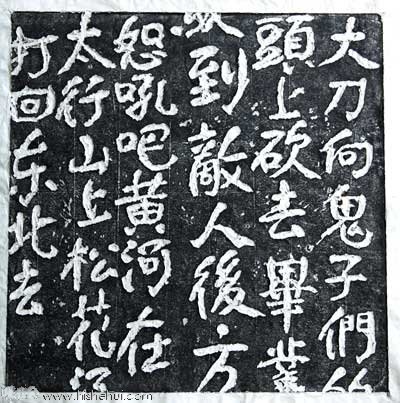 大刀向鬼子們的
頭上砍去畢業
到敵人後方
恕吼吧黄河在
太行山上松花江
打回东北去
www.hishehui.com